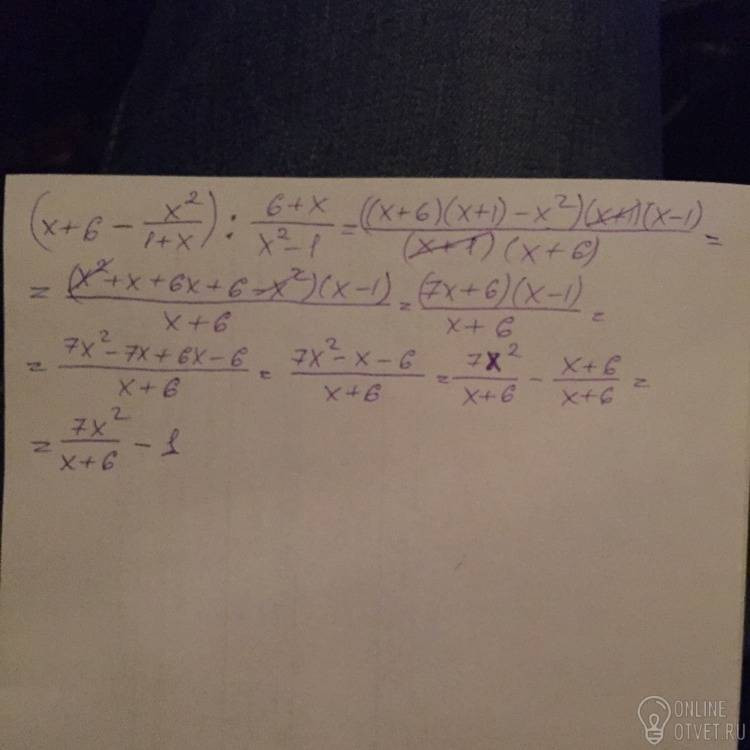 (x+6 - x²/(1+x)) : (6+x)/(x²-1) = ((x+6)(x+1) - x²)(x+1)(x-1)/((x+1)(x+6)) =
= (x²+x+6x+6-x²)(x-1)/(x+6) = (7x+6)(x-1)/(x+6) =
= (7x²-7x+6x-6)/(x+6) = (7x²-x-6)/(x+6) = 7x²/(x+6) - (x+6)/(x+6) =
= 7x²/(x+6) - 1
ONLINE
OTVET.RU